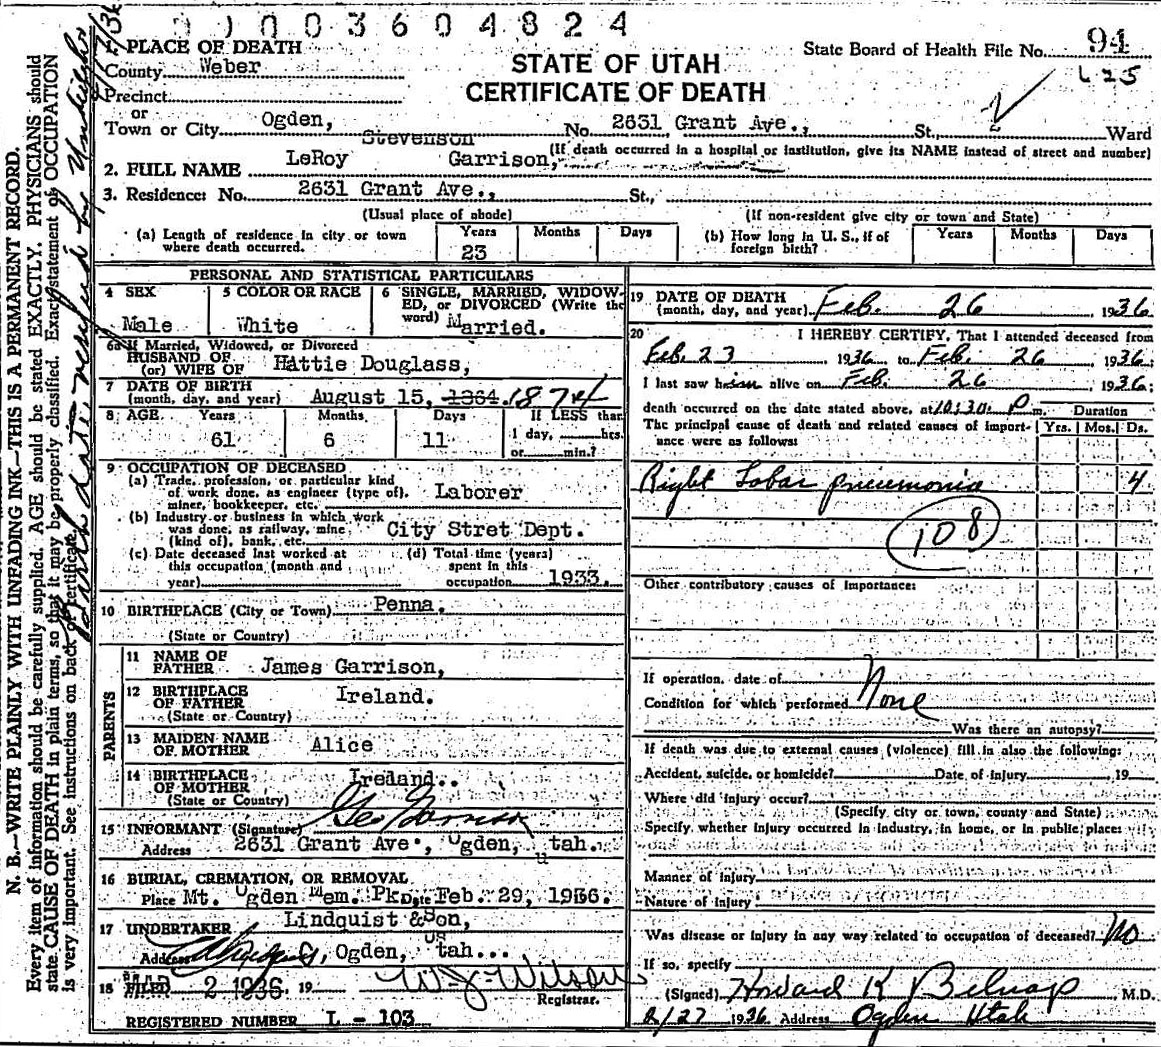 9 0 0 3 6 0 4 8 2 4
N. B.—WRITE PLAINLY WITH UNFADING INK—THIS IS A PERMANENT RECORD.
Every item of information should be carefully supplied. AGE should be stated EXACTLY. PHYSICIANS should
state CAUSE OF DEATH in plain terms, so that it may be properly classified. Exact statement of OCCUPATION
is very important. See instructions on back of certificate.
State Board of Health File No. 94
STATE OF UTAH
CERTIFICATE OF DEATH
PLACE OF DEATH
County Weber
Precinct
or
Town or City Ogden, No. 2631 Grant Ave., St., Ward
(If death occurred in a hospital or institution, give its NAME instead of street and number)
Stevenson
2. FULL NAME LeRoy Garrison,
3. Residence: No. 2631 Grant Ave., St.,
(Usual place of abode) (If non-resident give city or town and State)
(a) Length of residence in city or town where death occurred. Years 23 Months Days
(b) How long in U. S., if of foreign birth? Years Months Days
PERSONAL AND STATISTICAL PARTICULARS
4 SEX Male
5 COLOR OR RACE White
6 SINGLE, MARRIED, WIDOWED, or DIVORCED (Write the word) Married.
6a If Married, Widowed, or Divorced
HUSBAND OF
(or) WIFE OF Hattie Douglass,
7 DATE OF BIRTH
(month, day, and year) August 15, 1864. 1874
8 AGE Years 61 Months 6 Days 11 If LESS than 1 day, hrs. or min.?
9 OCCUPATION OF DECEASED
(a) Trade, profession, or particular kind of work done, as engineer (type of), miner, bookkeeper, etc. Laborer
(b) Industry or business in which work was done, as railway, mine (kind of), bank, etc. City Stret Dept.
(c) Date deceased last worked at this occupation (month and year)
(d) Total time (years) spent in this occupation 1933.
10 BIRTHPLACE (City or Town) Penna.
(State or Country)
PARENTS
11 NAME OF FATHER James Garrison,
12 BIRTHPLACE OF FATHER Ireland.
(State or Country)
13 MAIDEN NAME OF MOTHER Alice
14 BIRTHPLACE OF MOTHER Ireland..
(State or Country)
15 INFORMANT (Signature) Geo Garrison
Address 2631 Grant Ave., Ogden, Utah.
16 BURIAL, CREMATION, OR REMOVAL
Place Mt. Ogden Mem. Pk Date Feb. 29, 1936.
17 UNDERTAKER Lindquist & Son,
Address Ogden, Utah...
18 FILED 2 1936 19 W. J. Wilson
Registrar.
REGISTERED NUMBER L - 103
19 DATE OF DEATH
(month, day, and year) Feb. 26, 1936
20 I HEREBY CERTIFY, That I attended deceased from
Feb. 23, 1936 to Feb. 26, 1936
I last saw him alive on Feb. 26, 1936
death occurred on the date stated above, at 10:30 P m.
The principal cause of death and related causes of importance were as follows:
Duration
Yrs. Mos. Ds.
Right Lobar pneumonia 4
108
Other contributory causes of importance:
If operation, date of
Condition for which performed None
Was there an autopsy?
If death was due to external causes (violence) fill in also the following:
Accident, suicide, or homicide? Date of injury , 19
Where did injury occur?
(Specify city or town, county and State)
Specify whether injury occurred in industry, in home, or in public place:
Manner of injury
Nature of injury
Was disease or injury in any way related to occupation of deceased? No
If so, specify
(Signed) Howard K Belnap, M.D.
2/27 1936 Address Ogden Utah